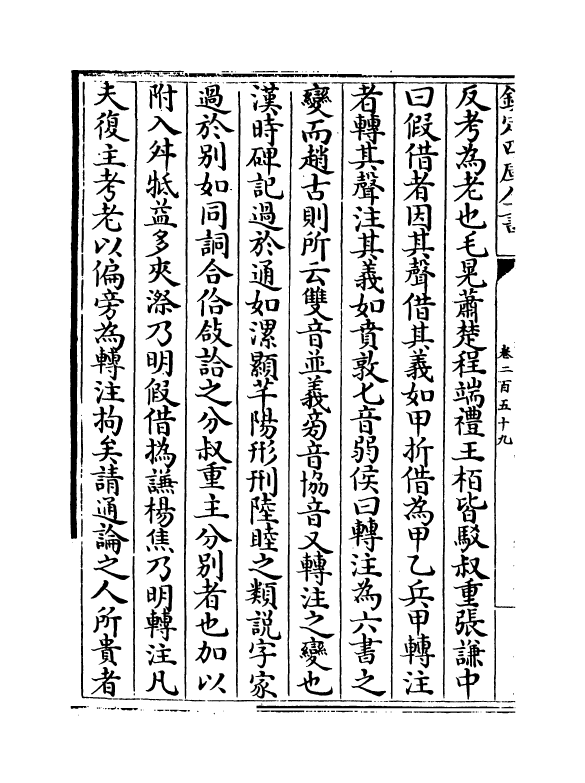 欽定四庫全書
卷二百五十九
反考為老也毛晃蕭楚程端禮王柏皆駁叔重張謙中
曰假借者因其聲借其義如甲折借為甲乙兵甲轉注
者轉其聲注其義如賁敦七音弱侯曰轉注為六書之
變而趙古則所云雙音並義旁音協音又轉注之變也
漢時碑記過於通如漯顯芊陽形刑陸睦之類説字家
過於別如同詞合佮敆詥之分叔重主分別者也加以
附入舛牴益多夾漈乃明假借撝謙楊焦乃明轉注凡
夫復主考老以偏旁為轉注拘矣請通論之人所貴者